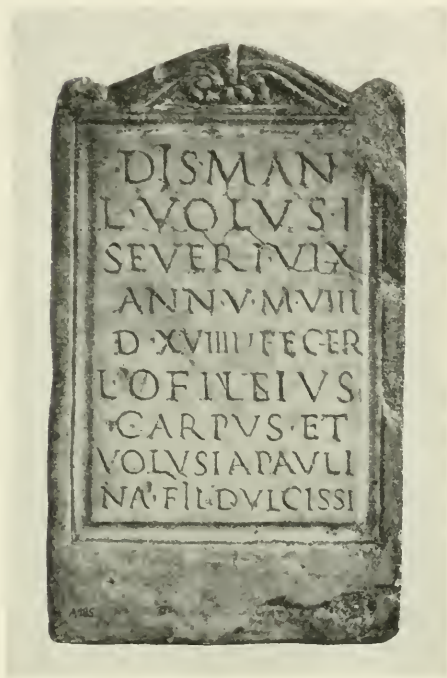 DIS·MAN
L·VOLVSI
SEVERI·VIX
ANN·V·M·VIII
D·XVIIII·FECER
L·OFILLIVS
CARPVS·ET
VOLVSIA PAVLI
NA·FIL·DVLCISSI
A185